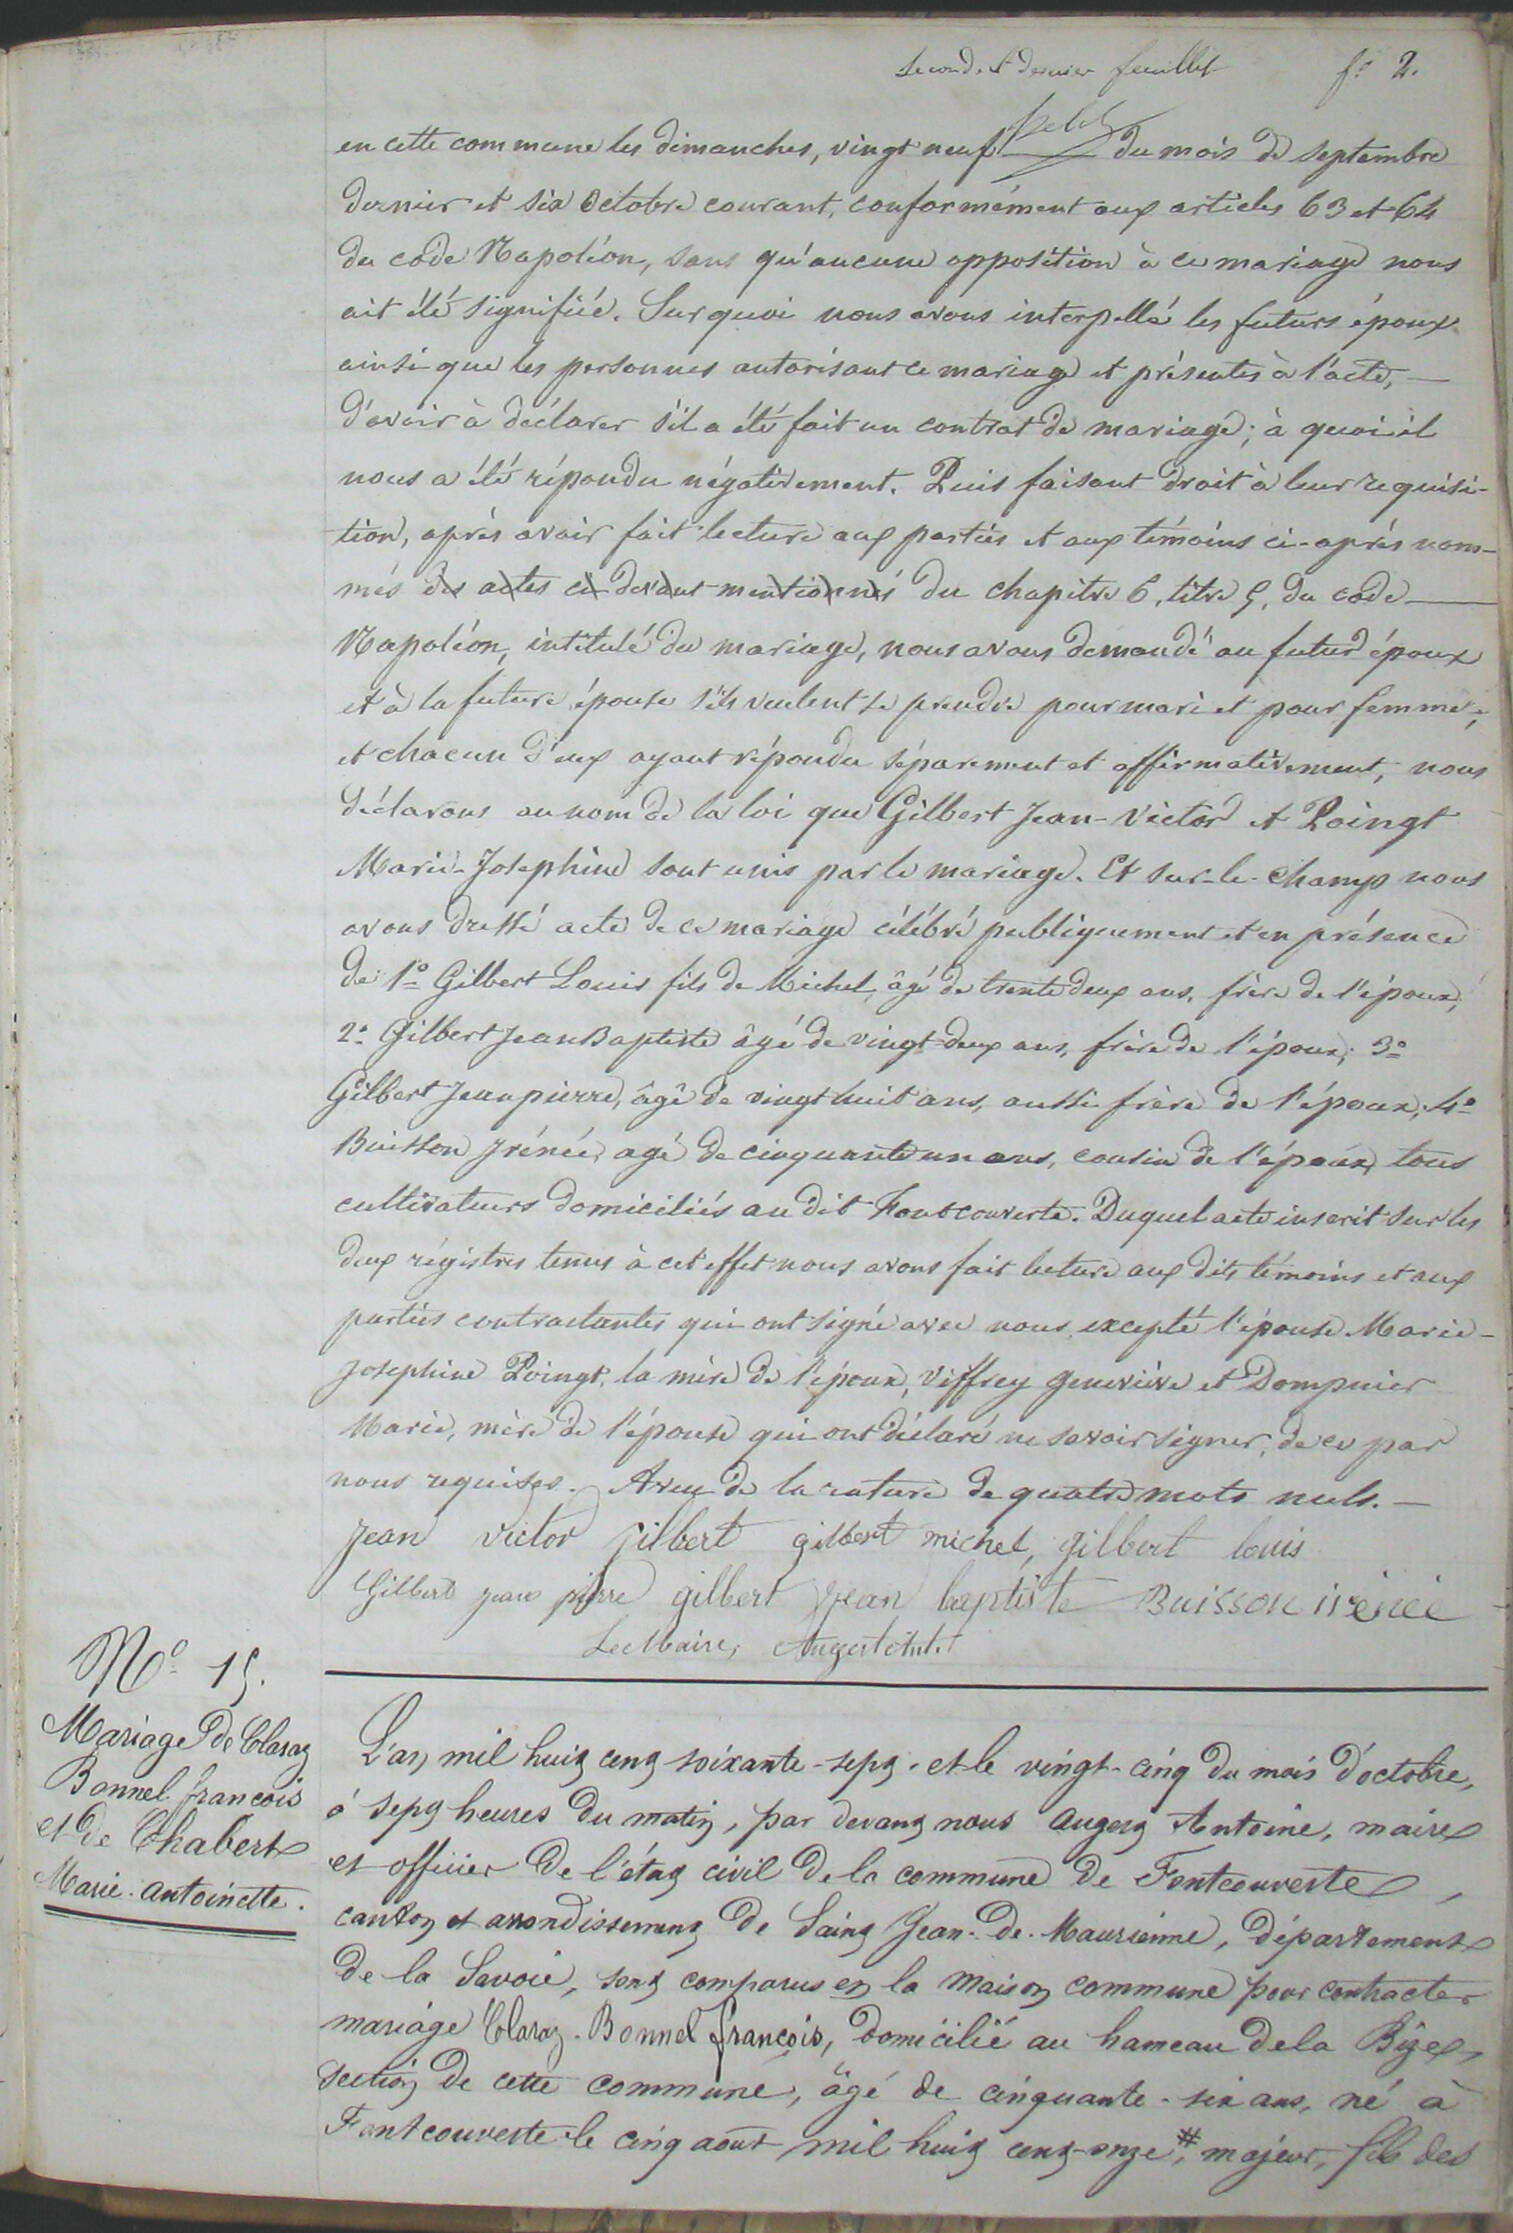 Second et dernier feuillet fo 2.
en cette commune les dimanches, vingt neuf du mois de septembre
dernier et six Octobre courant, conformément aux articles 63 et 64
du code Napoléon, sans qu'aucune opposition à ce mariage nous
ait été signifiée. Sur quoi nous avons interpellé les futurs époux
ainsi que les personnes autorisant ce mariage et présentes à l'acte, —
d'avoir à déclarer s'il a été fait un contrat de mariage; à quoi il
nous a été répondu négativement. Puis faisant droit à leur requisi-
tion, après avoir fait lecture aux parties et aux témoins ci-après nom-
més des actes ci devant mentionnés du chapitre 6, titre 5, du code —
Napoléon, intitulé du mariage, nous avons demandé au futur époux
et à la future épouse s'ils veulent se prendre pour mari et pour femme;
et chacun d'eux ayant répondu séparement et affirmativement, nous
déclarons au nom de la loi que Gilbert Jean-Victor et Poingt
Marie-Josephine sont unis par le mariage. Et sur-le-champ nous
avons dressé acte de ce mariage célébré publiquement et en présence
de 1o Gilbert Louis fils de Michel, âgé de trente deux ans, frère de l'époux;
2o Gilbert Jean Baptiste âgé de vingt-deux ans, frère de l'époux; 3o
Gilbert Jean pierre, âgé de vingt huit ans, aussi frère de l'époux; 4o
Buisson Irénée, agé de cinquante un ans, cousin de l'époux, tous
cultivateurs domiciliés au dit Fontcouverte. Duquel acte inscrit sur les
deux régistres tenus à cet effet nous avons fait lecture aux dits témoins et aux
parties contractantes qui ont signé avec nous, excepté l'épouse Marie-
Josephine Poingt, la mère de l'époux, Viffrey Geneviève et Dompnier
Marie, mère de l'épouse qui ont déclaré ne savoir signer, de ce par
nous requises. Aveu de la rature de quatre mots nuls. —
Jean victor gilbert gilbert michel, gilbert louis
Gilbert jean pierre gilbert jean baptiste Buisson irénée
Le Maire, Augert Ant.
No 15.
Mariage de Claraz
Bonnel françois
et de Chabert
Marie-Antoinette.
L'an mil huit cent soixante-sept et le vingt-cinq du mois d'octobre,
à sept heures du matin, par devant nous Augert Antoine, maire
et officier de l'état civil de la commune de Fontcouverte,
canton et arrondissement de Saint Jean-de-Maurienne, département
de la Savoie, sont comparus en la maison commune pour contracter
mariage Claraz-Bonnel françois, domicilié au hameau de la Bize,
section de cette commune, âgé de cinquante-six ans, né à
Fontcouverte le cinq août mil huit cent-onze #, majeur, fils des